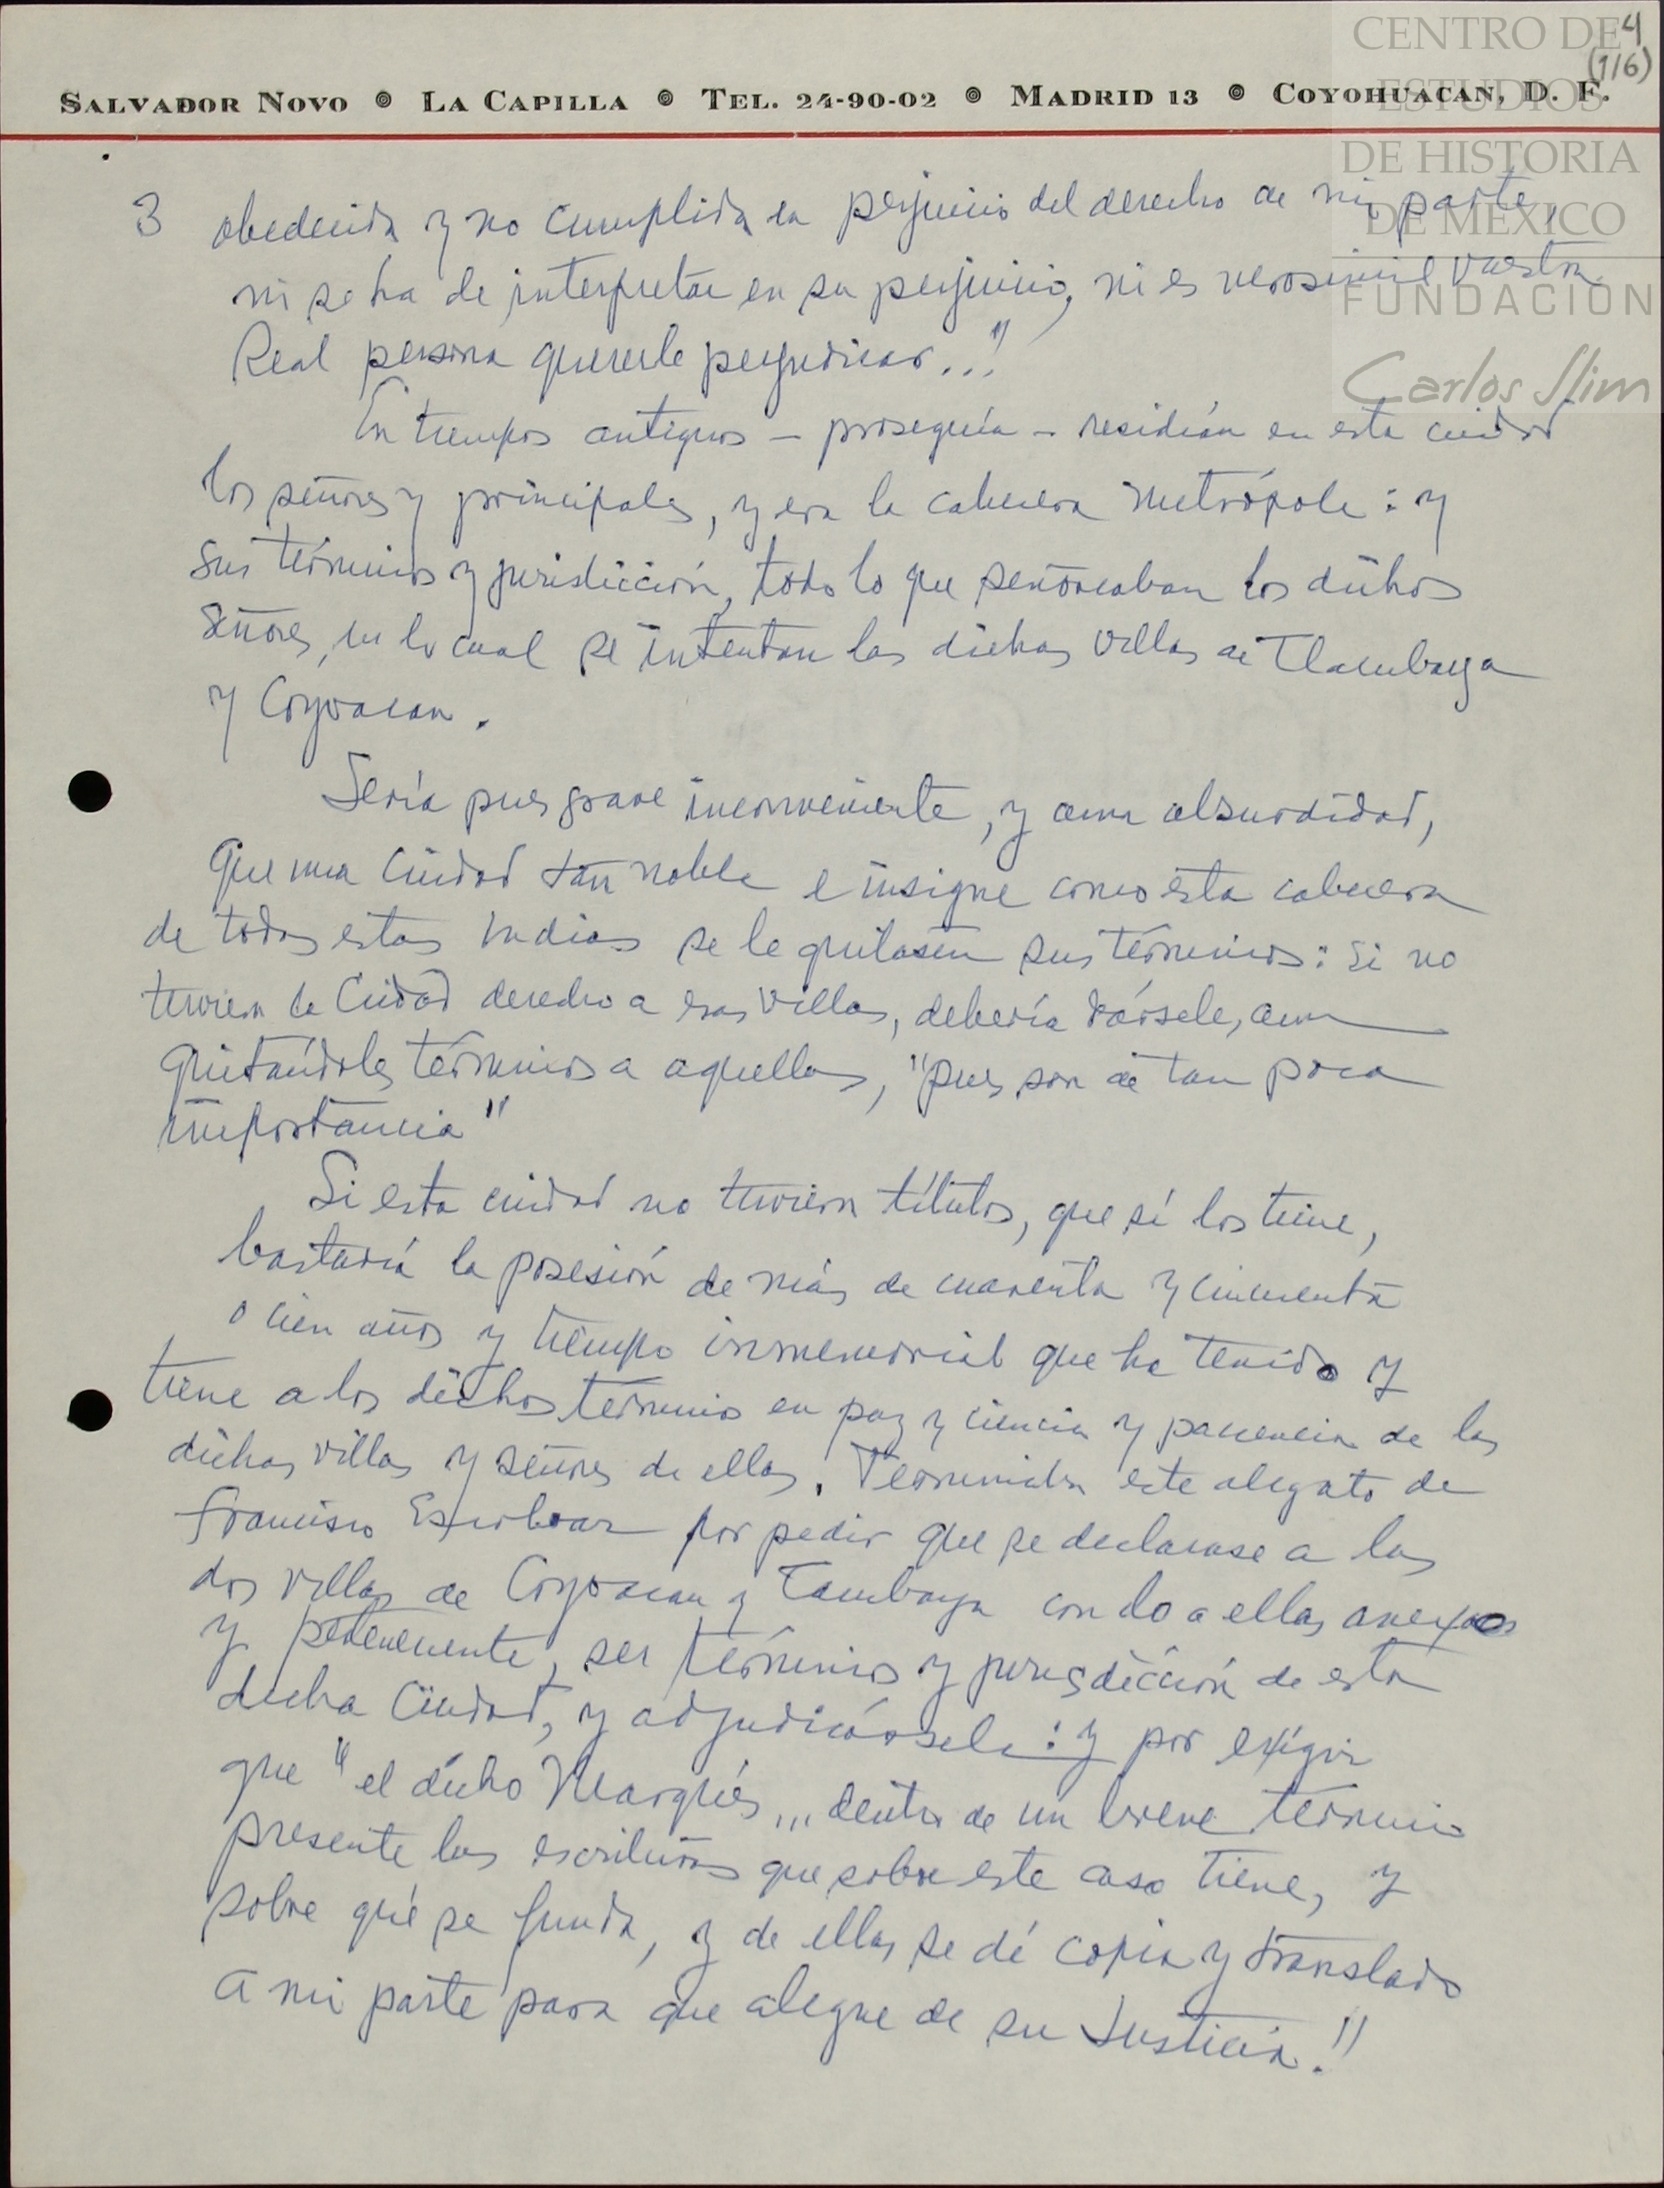 CENTRO DE
ESTUDIOS
DE HISTORIA
DE MÉXICO
FUNDACIÓN
Carlos Slim
4
(1/6)
SALVADOR NOVO ⊚ LA CAPILLA ⊚ TEL. 24-90-02 ⊚ MADRID 13 ⊚ COYOHUACAN, D. F.
3 obedecida y no cumplida en perjuicio del derecho de mi parte,
ni se ha de interpretar en su perjuicio, ni es verosimil vuestra
Real persona quererle perjudicar..."
En tiempos antiguos – proseguía – residían en esta ciudad
los señores y principales, y era la cabecera metrópole: y
sus términos y jurisdicción, todo lo que señoreaban los dichos
señores, en lo cual se intentan las dichas villas de Tlacubaya
y Coyoacan.
Sería pues grave inconveniente, y aun absurdidad,
que una ciudad tan noble e insigne como esta cabecera
de todas estas Indias se le quitasen sus términos: si no
tuviera la Ciudad derecho a esas villas, debería dársele, aun
quitándoles términos a aquellas, "pues son de tan poca
importancia"
Si esta ciudad no tuviera títulos, que sí los tiene,
bastaría la posesión de más de cuarenta y cincuenta
o cien años y tiempo inmemorial que ha tenido y
tiene a los dichos términos en paz y ciencia y paciencia de las
dichas villas y señores de ellas. Terminaba este alegato de
Francisco Escobar por pedir que se declarase a las
dos villas de Coyoacan y Tacubaya con lo a ellas anexo
y perteneciente, ser términos y jurisdicción de esta
dicha Ciudad, y adjudicársele: y por exigir
que "el dicho Marqués... dentro de un breve término
presente las escrituras que sobre este caso tiene, y
sobre qué se funda, y de ellas se dé copia y translado
a mi parte para que alegue de su Justicia."